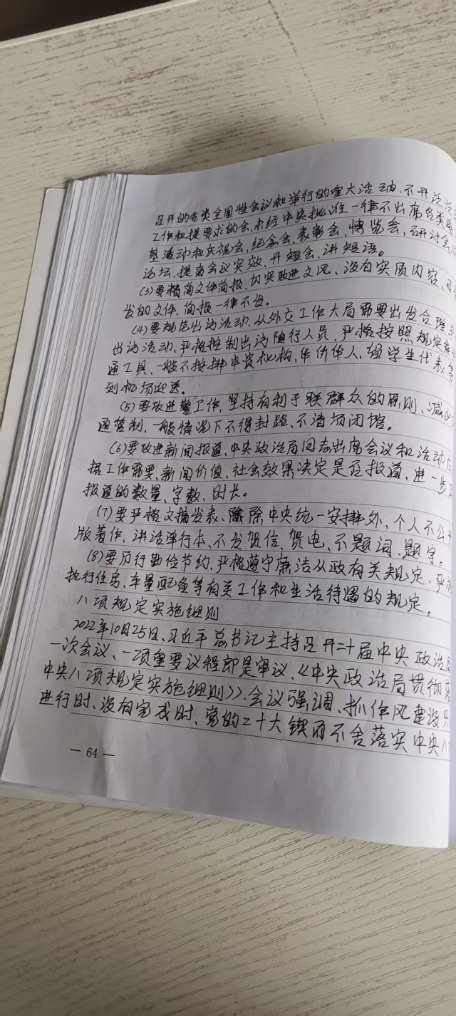 召开的各类全国性会议和举行的重大活动、不开泛泛
工作和提要求的会,未经中央批准一律不出席各类剪
基活动和庆祝会、纪念会、表彰会、博览会、研讨会
论坛、提高会议实效、开短会、讲短话。
(3)要精简文件简报、切实改进文风、没有实质内容、
发的文件、简报一律不发。
(4)要规范出访活动、从外交工作大局需要出发合理
出访活动,严格控制出访随行人员,严格按照规定
通工具、一般不安排中资机构、华侨华人、留学生代表等
到机场迎送。
(5)要改进警卫工作、坚持有利于联系群众的原则、减少
通管制,一般情况下不得封路、不清场闭馆。
(6)要改进新闻报道、中央政治局同志出席会议和活动
据工作需要、新闻价值、社会效果决定是否报道、进一步
报道的数量、字数、时长。
(7)要严格文稿发表、除中央统一安排外、个人不公开
版著作、讲话单行本、不发贺信、贺电、不题词、题字。
(8)要厉行勤俭节约、严格遵守廉洁从政有关规定、严
执行住房、车辆配备等有关工作和生活待遇的规定。
八项规定实施细则
2022年10月25日、习近平总书记主持召开二十届中央政治局
一次会议、一项重要议程即是审议、《中央政治局贯彻
中央八项规定实施细则》。会议强调、抓作风建设
进行时、没有完成时、党的二十大锲而不舍落实中央八
— 64 —